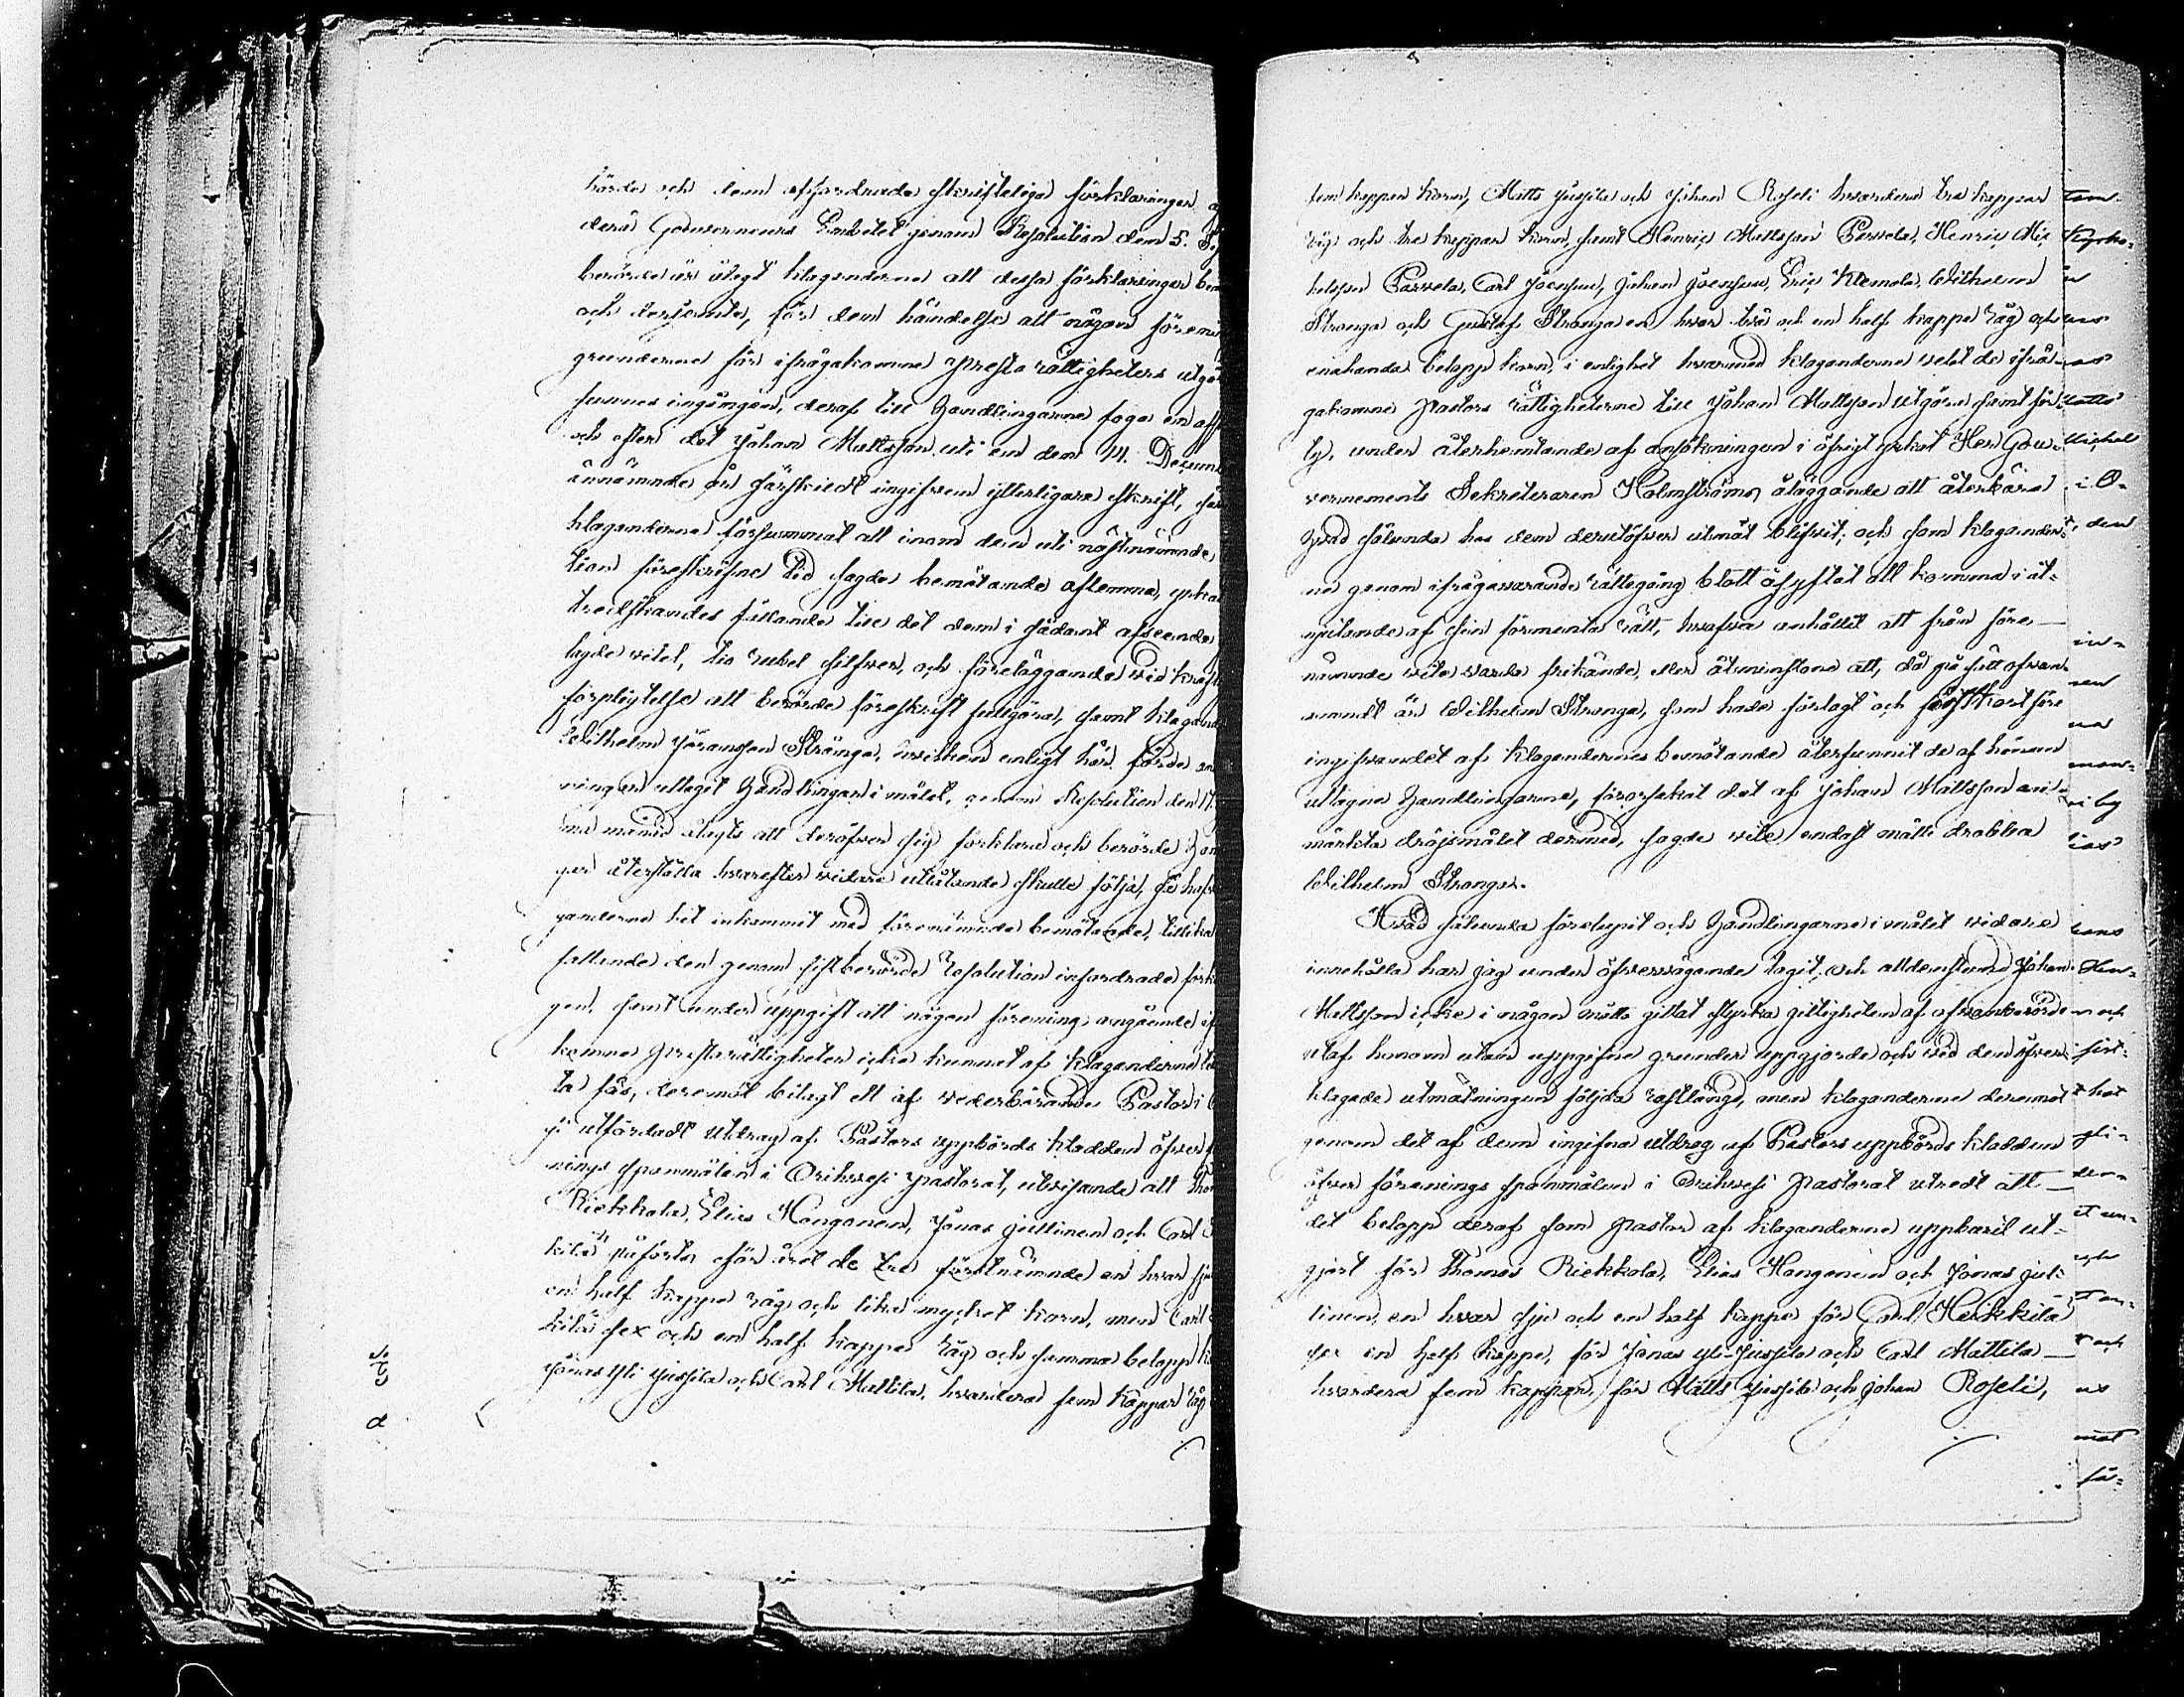 hörde och dem affordrade skrifteliga förklaringar
derå Gouverneurs Embetet genom Resolution den 5.
berörde år ålagt klaganderne att dessa förklaringar
och derjemte, för den händelse att någon
grunderne för ifrågakomne Prestarättigheters
funnes ingången, deraf till Handlingarne foga en
och efter det Johan Mattsson uti en den 14.
ännämnde år särskiedt ingifwen ytterligare skrift,
klaganderne försummat att inom den uti nästnämnde
tion föreskrifne tid sagde bemötande aflemna,
tredskandes fällande till det dem i sådant afseende
lagde vitet, tio rubel silfver, och föreläggande wid
förpligtelse att berörde föreskrift fullgöra, samt
Wilhelm Jöransson Stränga, hwilken enligt här förde
ningen uttagit Handlingarne i målet, genom Resolution den 17.
ma månad ålagts att deröfwer sig förklara och berörde
gar återställa hwarefter widare utlåtande skulle följa, så
ganderne hit inkommit med förenämnde bemötande, tillika
fattande den genom sistberörde Resolution infordrade
gen, samt under uppgift att någon förening angående
komne Prestarättigheter icke kunnat af klaganderne
ta fås, deremot bilagt ett af wederbörande Pastor i
si utfärdadt Utdrag af Pastors uppbörds kladden öfwer
nings spannmålen i Orihwesi pastorat, utwisande att
Riekkola, Elias Hanganen, Jonas Jullinen och Carl
kilä påförts för året de tre förstnämnde en hwar
en half kappe råg och lika mycket korn, men Carl
kilä sex och en half kappe råg och samma belopp
Jonas Yli Jussila och Carl Mattila, hwardera fem kappar råg
d
fem kappar korn, Matts Jussila och Johan Roseli hwardera tre kappar
råg och tre kappar korn, samt Henric Mattsson Parvela, Henric Mic
kelsson Parvela, Carl Joensuu, Johan Joensuu, Eric Klemola, Wilhelm
Stranga och Gustaf Stranga en hwar två och en half kappe råg och
enahanda belopp korn, i enlighet hwarmed klaganderne velat de ifrå-
gakomne Pastors rättigheterne till Johan Mattsson utgöra samt för
ty, under återhemtande af ansökningen i öfrigt yrkat Herr Gou-
vernements Sekreteraren Holmströms åläggande att återbära
hwad sålunda hos dem derutöfwer utmät blifwit; och som klagander-
ne genom ifrågawarande rättegång blott åsyftat att komma i åt-
njutande af sin förmenta rätt, hwarföre anhållit att från före
nämnde vite warda frikände, eller åtminstone att, då på sätt ofwan
nämndt är Wilhelm Stranga, som hade förlagt och först kort före
ingifwandet af klagandernes bemötande återfunnit de af honom
uttagne Handlingarne, förorsakat det af Johan Mattsson an-
märkta dröjsmålet dermed, sagde vite endast måtte drabba
Wilhelm Stranga.
Hwad sålunda förelupit och Handlingarne i målet widare
innehålla har jag under öfwerwägande tagit, och alldenstund Johan
Mattsson icke i någon måtto gittat styrka giltigheten af ofwanberörde
utaf honom utan uppgifne grunder uppgjorde och wid den öfwer-
klagade utmätningen följda restlängd, men klaganderne deremot
genom det af dem ingifna utdrag af Pastors uppbörds kladden
öfwer förenings spannmålen i Orihwesi Pastorat utredt att
det belopp deraf som pastor af klaganderne uppburit ut-
gjort för Thomas Riekkola, Elias Hanganen och Jonas Jul-
linen, en hwar sju och en half kappe för Carl Heikkilä
sex en half kappe, för Jonas Yli-Jussila och Carl Mattila
hwardera fem kappar, för Matts Jussila och Johan Roseli,
i O-
den
mot